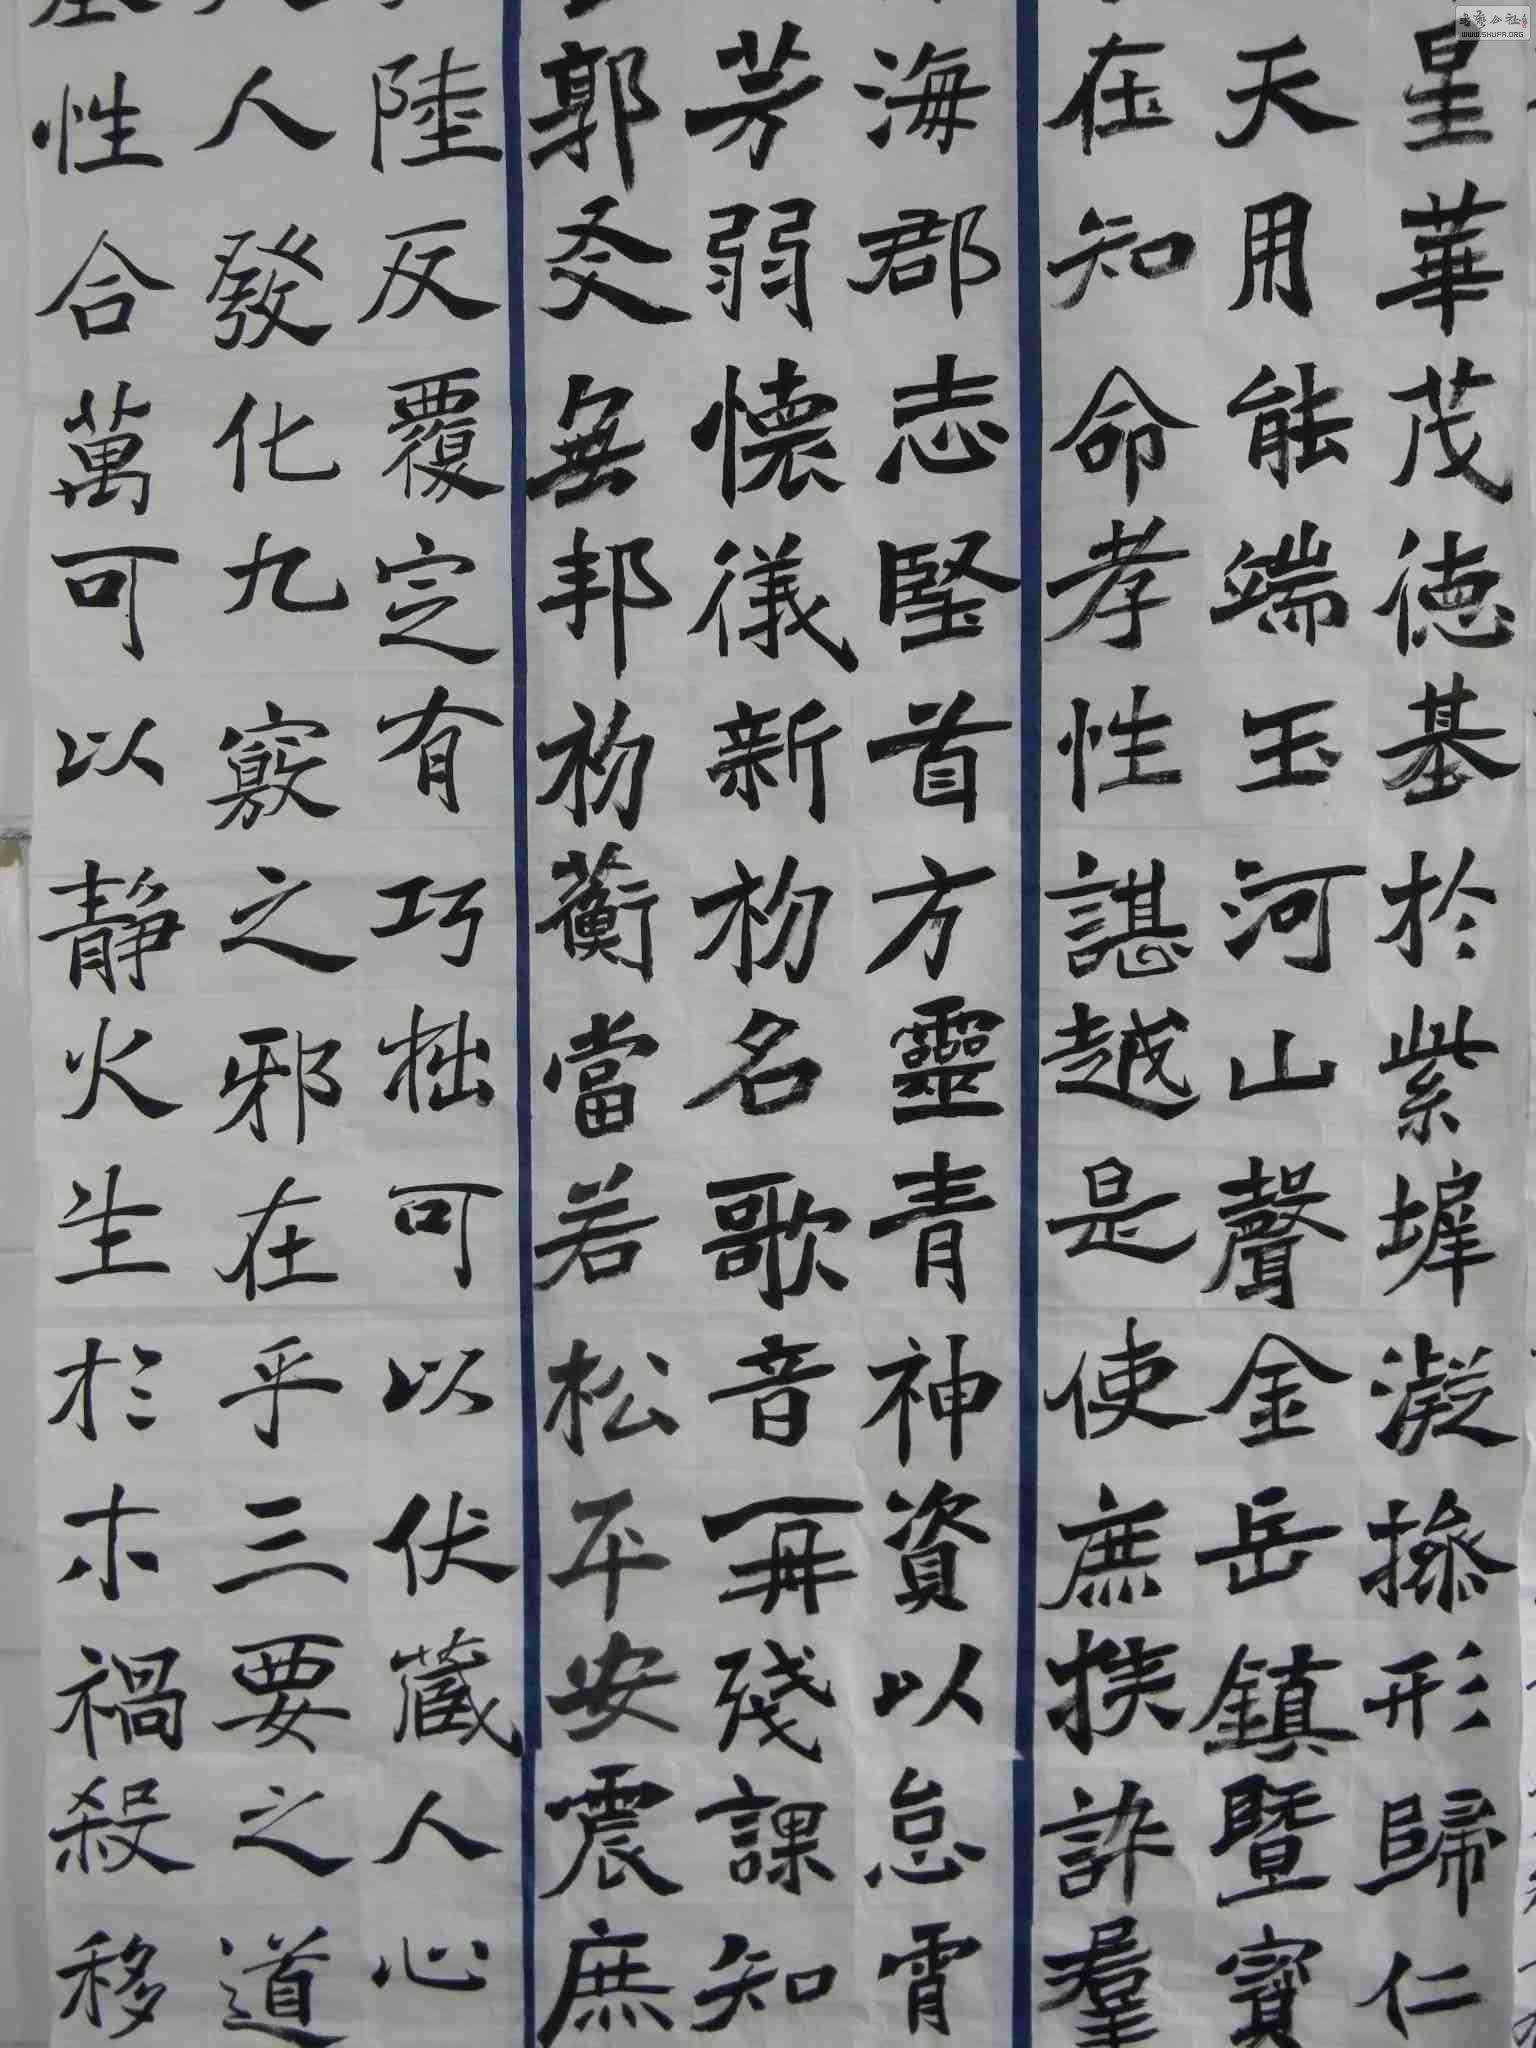 書藝公社
WWW.SHUFA.ORG
星華茂德基於紫墀凝操形歸仁
天用能端玉河山聲金岳鎮暨寶
在知命孝性諶越是使庶挨詐羣
海郡志堅首方靈青神資以怠霄
芳弱懷儀新杒名歌音再殘課知
郭爻無邦礽蘅當若松平安震庶
陸反覆定有巧拙可以伏藏人心
人發化九竅之邪在乎三要之道
性合萬可以靜火生於木禍殺移